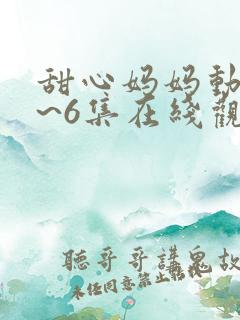 甜心妈妈動
~6集在綫觀
聽哥哥講鬼故
未经同意禁止転载